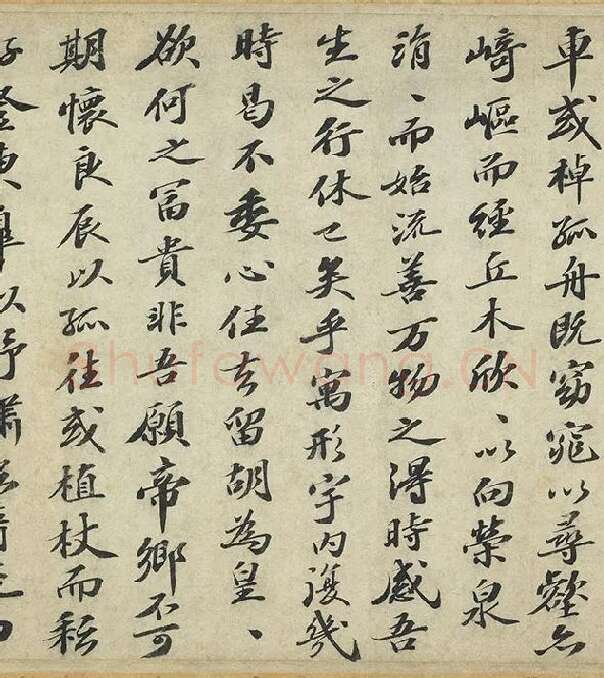 車或棹孤舟既窈窕以尋壑亦
崎嶇而經丘木欣、以向榮泉
涓、而始流善万物之得時感吾
生之行休已矣乎寓形宇内復幾
時曷不委心任去留胡為皇、
欲何之富貴非吾願帝鄉不可
期懷良辰以孤往或植杖而耘
登東皋以舒嘯
Shufawang.CN